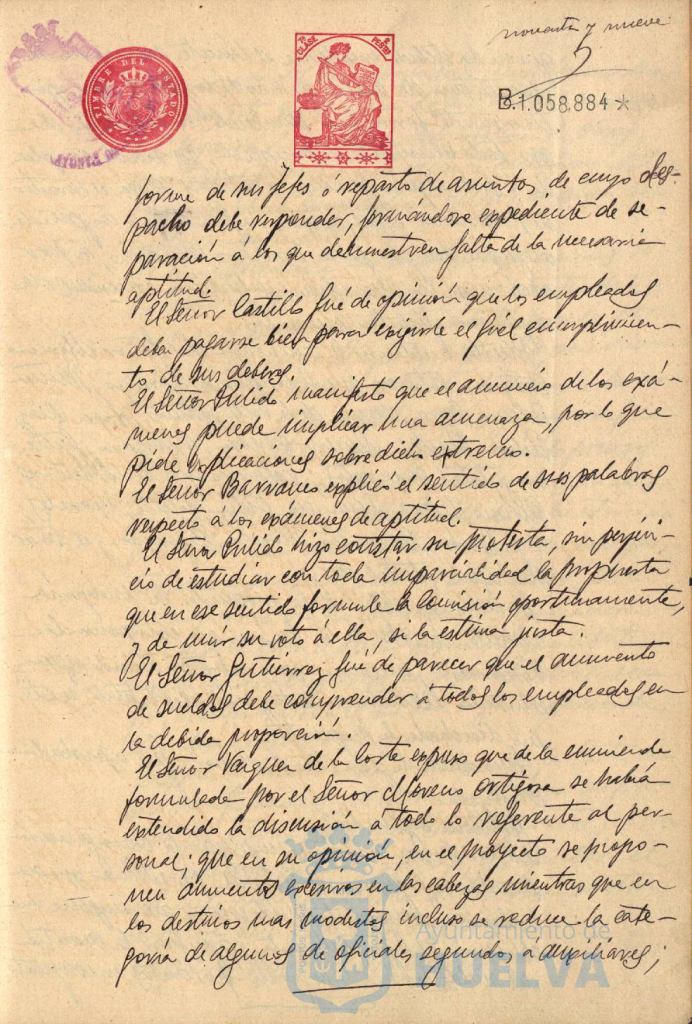 noventa y nueve
TIMBRE DEL ESTADO
7ª CLASE
PESETAS
B.1.058,884 *
forme de sus Jefes ó reparto de asuntos de cuyo des-
pacho debe responder, formándose expediente de se-
paración á los que demuestren falta de la necesaria
aptitud.
El Señor Castillo fué de opinión que los empleados
deben pagarse bien para exigirle el fiel cumplimien-
to de sus deberes.
El Señor Pulido manifestó que el anuncio de los exá-
menes puede implicar una amenaza, por lo que
pide explicaciones sobre dicho extremo.
El Señor Barranco explicó el sentido de sus palabras
respecto á los exámenes de aptitud.
El Señor Pulido hizo constar su protesta, sin perjui-
cio de estudiar con toda imparcialidad la propuesta
que en ese sentido formule la Comisión oportunamente,
y de unir su voto á ella, si la estima justa.
El Señor Gutiérrez fué de parecer que el aumento
de sueldos debe comprender á todos los empleados en
la debida proporción.
El Señor Vazquez de la Corte expuso que de la enmienda
formulada por el Señor Moreno Ortigosa se había
extendido la discusión á todo lo referente al per-
sonal; que en su opinión, en el proyecto se propo-
nen aumentos excesivos en las cabezas mientras que en
los destinos mas modestos incluso se reduce la cate-
goría de algunos de oficiales segundos á auxiliares;
Ayuntamiento de
HUELVA